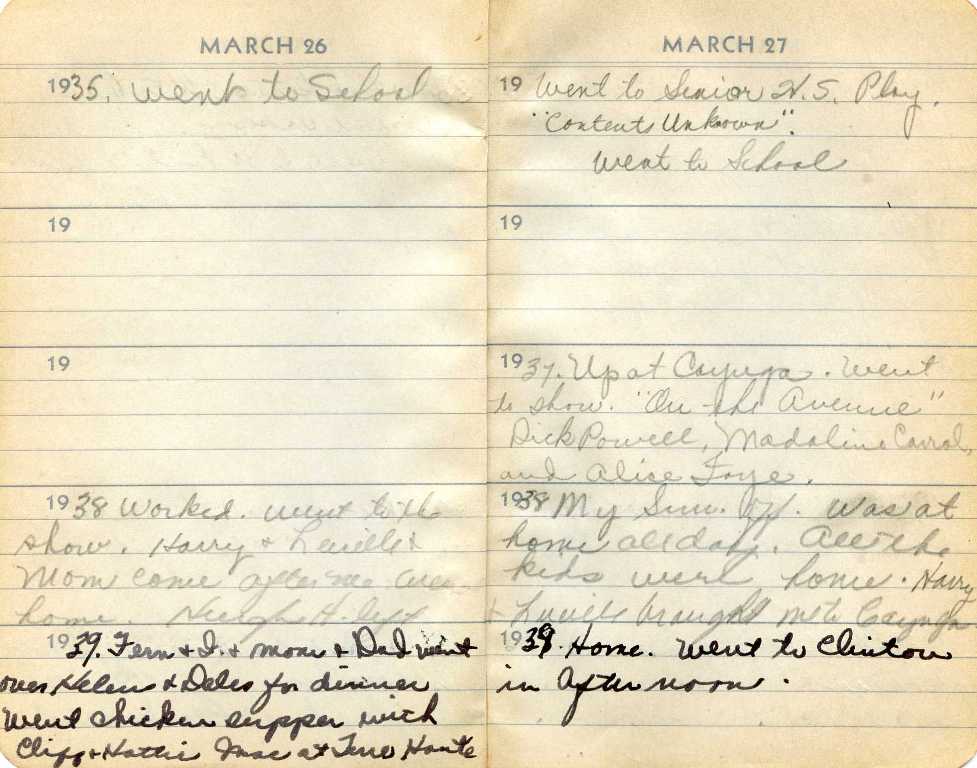 MARCH 26
1935. Went to School
19
19
1938 Worked. went to the
show. Harry & Lucille &
Mom come after me
home.
1939. Fern & I. & mom & Dad went
over Helens & Dales for dinner
Went chicken supper with
Cliff & Hattie Mae at Terre Haute
MARCH 27
19 Went to Senior H.S. Play.
"Contents Unknown".
Went to School
19
1937. Up at Cayuga. Went
to show. "On the Avenue"
Dick Powell, Madaline Carrol,
and Alice Faye.
1938 My Sun. off. Was at
home all day. All the
kids were home. Harry
& Lucille brought me to Cayuga
1939. Home. Went to Clinton
in afternoon.